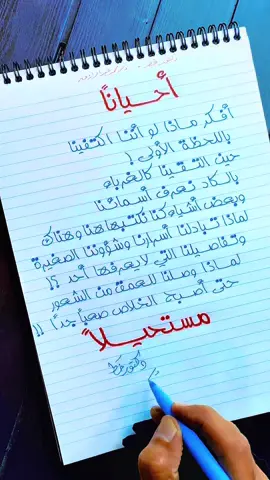 أحياناً
أفكر ماذا لو أننا اكتفينا
باللحظة الأولى ؟
حين التقينا كالغرباء
بالكاد نعرف أسمائنا
وبعض أشياء كنا نكتبها هنا وهناك
لماذا تبادلنا أسرارنا وشؤوننا الصغيرة
وتفاصيلنا التي لا يعرفها أحد ؟!
لماذا وصلنا للعمق من الشعور
حتى أصبح الخلاص صعباً جداً !!
مستحيلاً